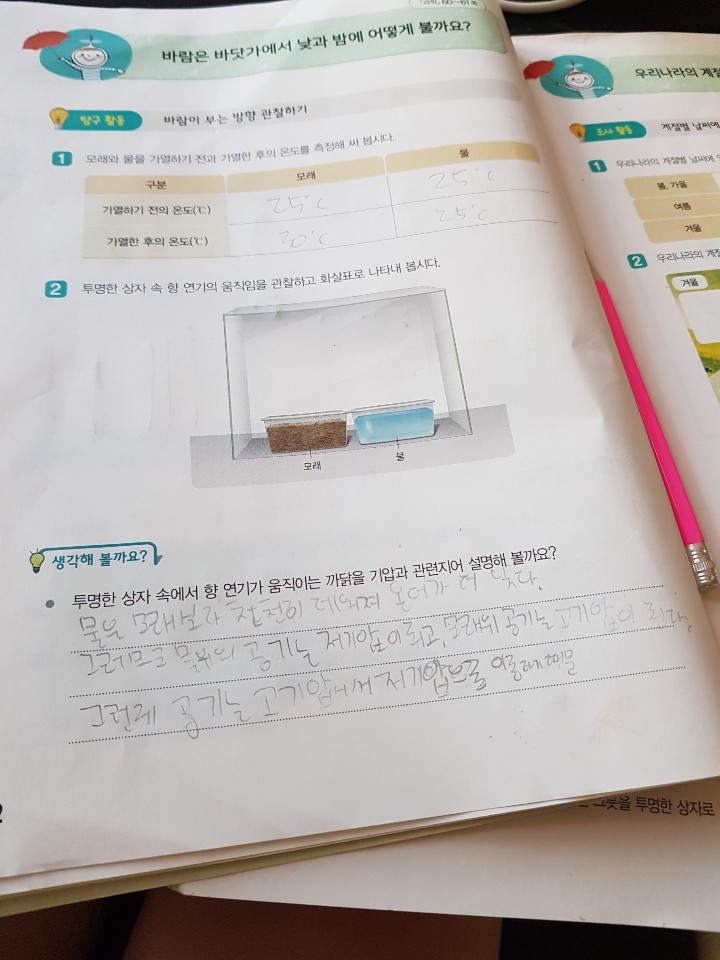 「과학」 60~61쪽
바람은 바닷가에서 낮과 밤에 어떻게 불까요?
탐구 활동 바람이 부는 방향 관찰하기
1 모래와 물을 가열하기 전과 가열한 후의 온도를 측정해 써 봅시다.
구분 모래 물
가열하기 전의 온도(℃) 25℃ 25℃
가열한 후의 온도(℃) 30℃ 25℃
2 투명한 상자 속 향 연기의 움직임을 관찰하고 화살표로 나타내 봅시다.
모래 물
생각해 볼까요?
투명한 상자 속에서 향 연기가 움직이는 까닭을 기압과 관련지어 설명해 볼까요?
물은 모래보다 천천히 데워져 온더가 더 낮다.
그러므로 물위의 공기는 저기압이 되고, 모래위 공기는 고기압이 되다.
그런데 공기는 고기압에서 저기압으로 이동하기 때문
우리나라의 계절
조사 활동 계절별 날씨에
1 우리나라의 계절별 날씨에
봄, 가을
여름
겨울
2 우리나라의 계절
겨울
그릇을 투명한 상자로
2